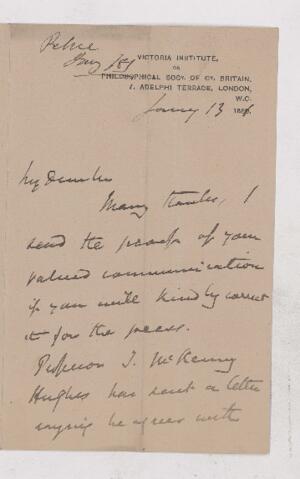 VICTORIA INSTITUTE,
OR
PHILOSOPHICAL SOCY. OF GT. BRITAIN,
7, ADELPHI TERRACE, LONDON,
W.C.
Jany 13 188
My Dear Sir
Many thanks, I
send the proof of your
valued communication
if you will kindly correct
it for the press.
Professor T. McKenny
Hughes has sent a letter
saying he agrees with